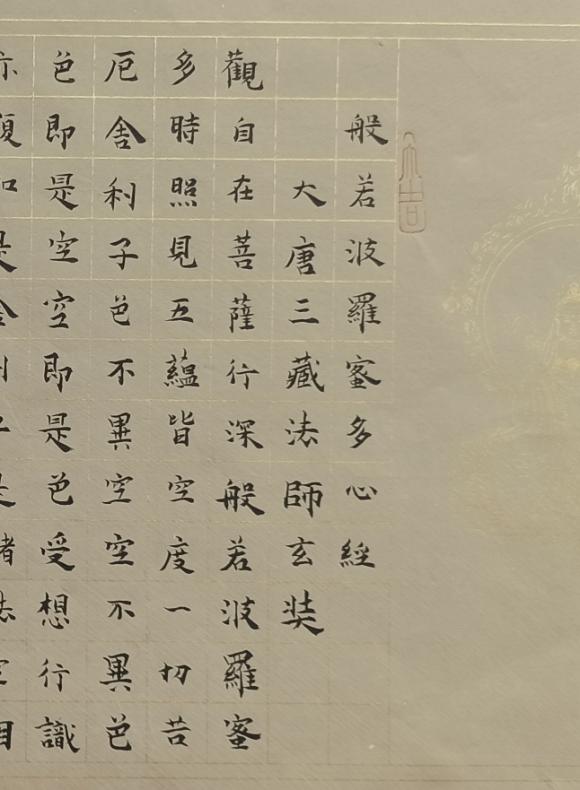 大吉
般若波羅蜜多心經
大唐三藏法師玄奘
觀自在菩薩行深般若波羅蜜
多時照見五蘊皆空度一切苦
厄舍利子色不異空空不異色
色即是空空即是色受想行識
亦復如是舍利子是諸法空相